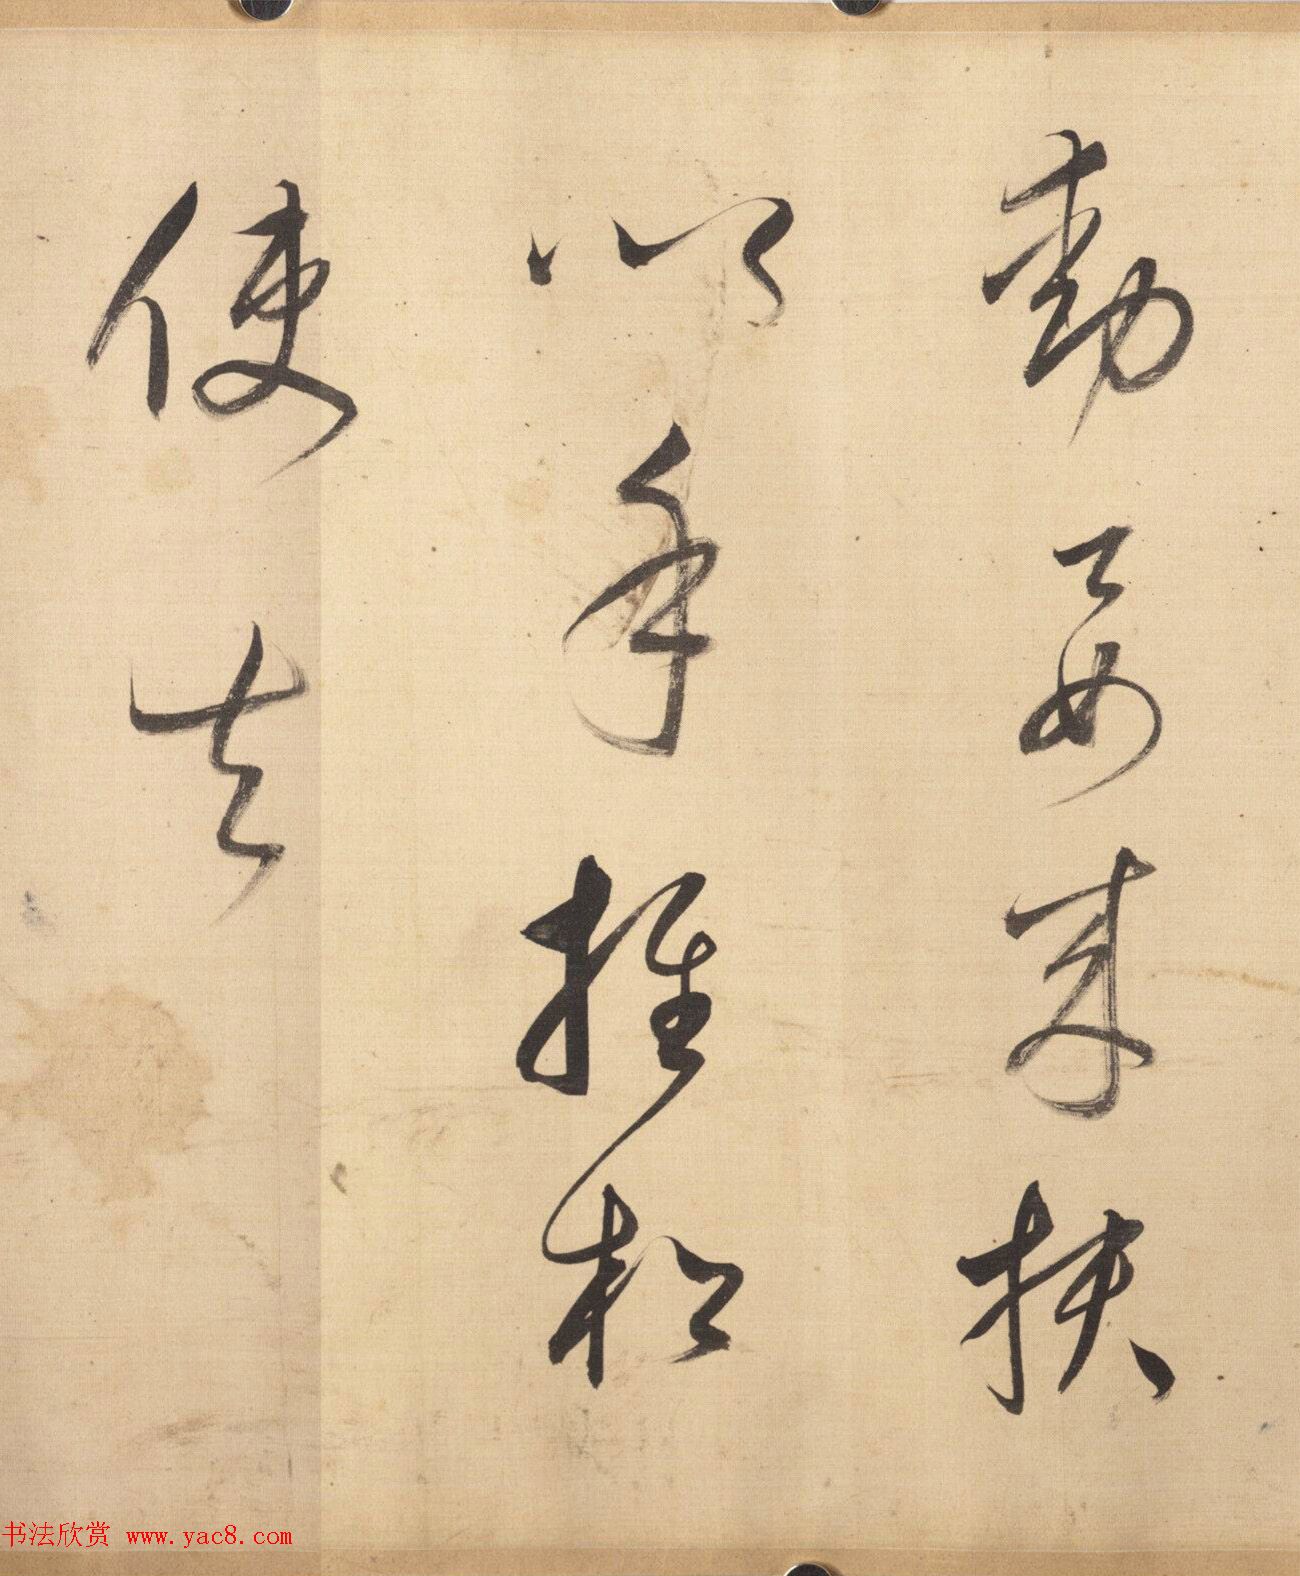 動要来扶
以手推松
使去
书法欣赏 www.yac8.com